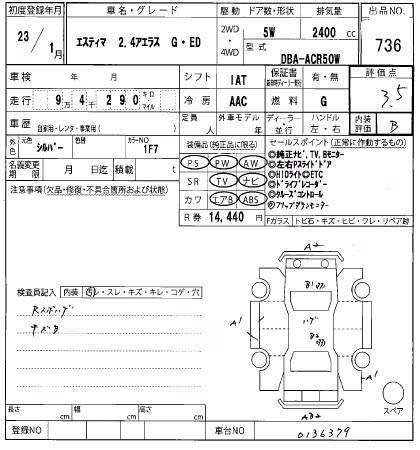 初度登録年月
車名・グレード
駆動
ドア数・形状
排気量
出品NO
23/1月
エスティマ 2.4アエラス G・ED
2WD
・
4WD
5W
2400 cc
型式
DBA-ACR50W
736
車検 年 月
シフト
IAT
保証書
有・無
評価点
走行
9万4千290キロ
マイル
冷房
AAC
燃料
G
3.5
車歴
自家用・レンタ・事業用( )
定員
人
外車モデル
年
ディーラー・並行
ハンドル
左・右
内装評価
B
外色
元色
シルバー
カラーNO
1F7
装備品(純正品に限る)
セールスポイント(正常に動作するもの)
名義変更期限
月 日迄
積載
t
PS PW AW
SR TV ナビ
カワ エアB ABS
R券 14,440 円
◎純正ナビ、TV、Bモニター
◎左右Pスライドドア
◎HIDライト◎ETC
◎ドライブレコーダー
◎クルーズコントロール
注意事項(欠品・修復・不具合箇所および状態)
Fガラス
トビ石・キズ・ヒビ・ワレ・リペア跡
A2
検査員記入
内装
汚レ・スレ・キズ・キレ・コゲ・穴
A1
A1
ハゲ
長さ cm
幅 cm
高さ cm
スペア
登録NO
車台NO
0136379